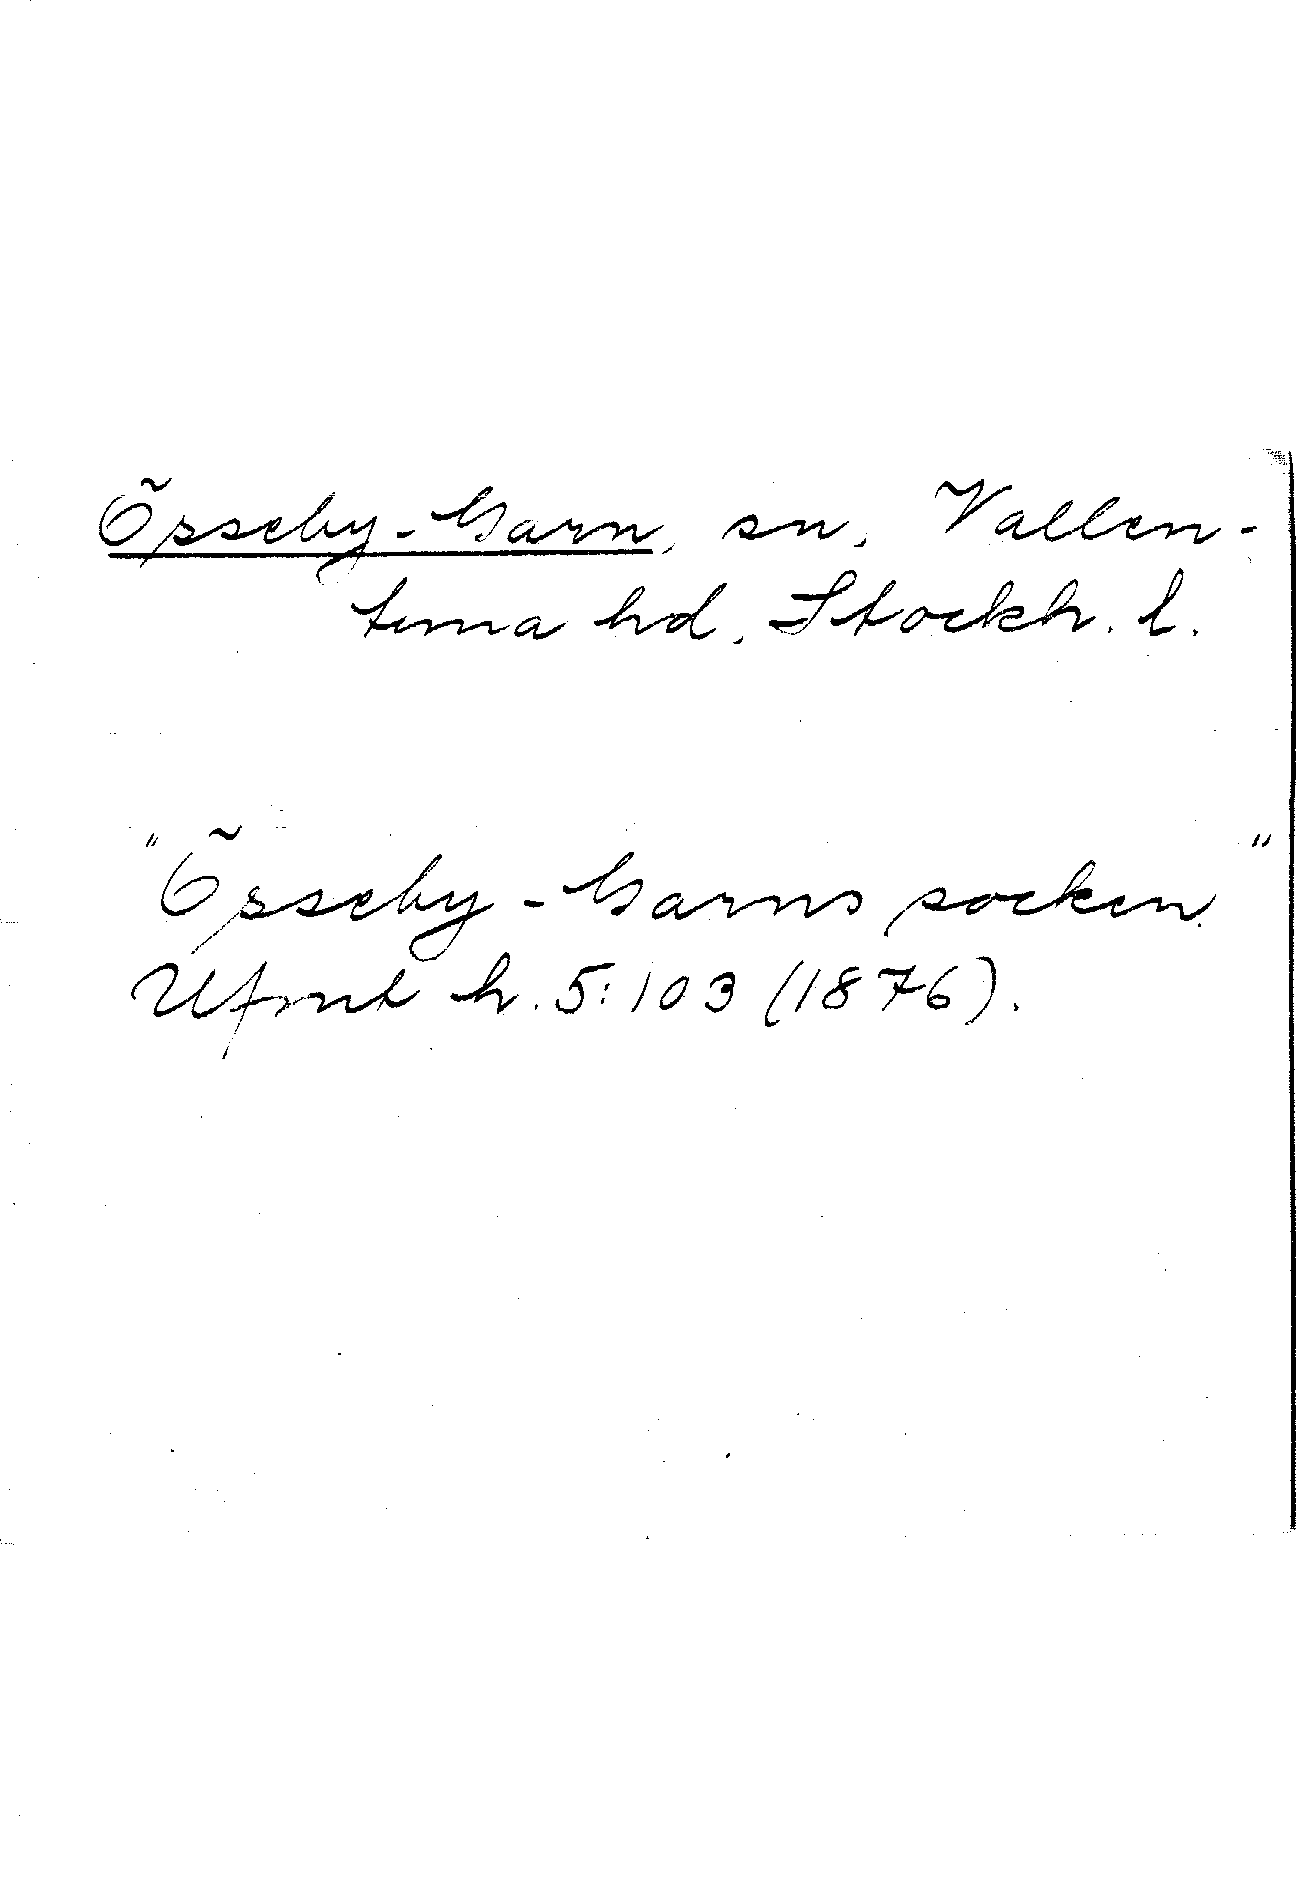 Össeby-Garn, sn, Vallen-
tuna hd, Stockh. l.
"Össeby-Garns socken."
Ufmt h. 5:103 (1876).